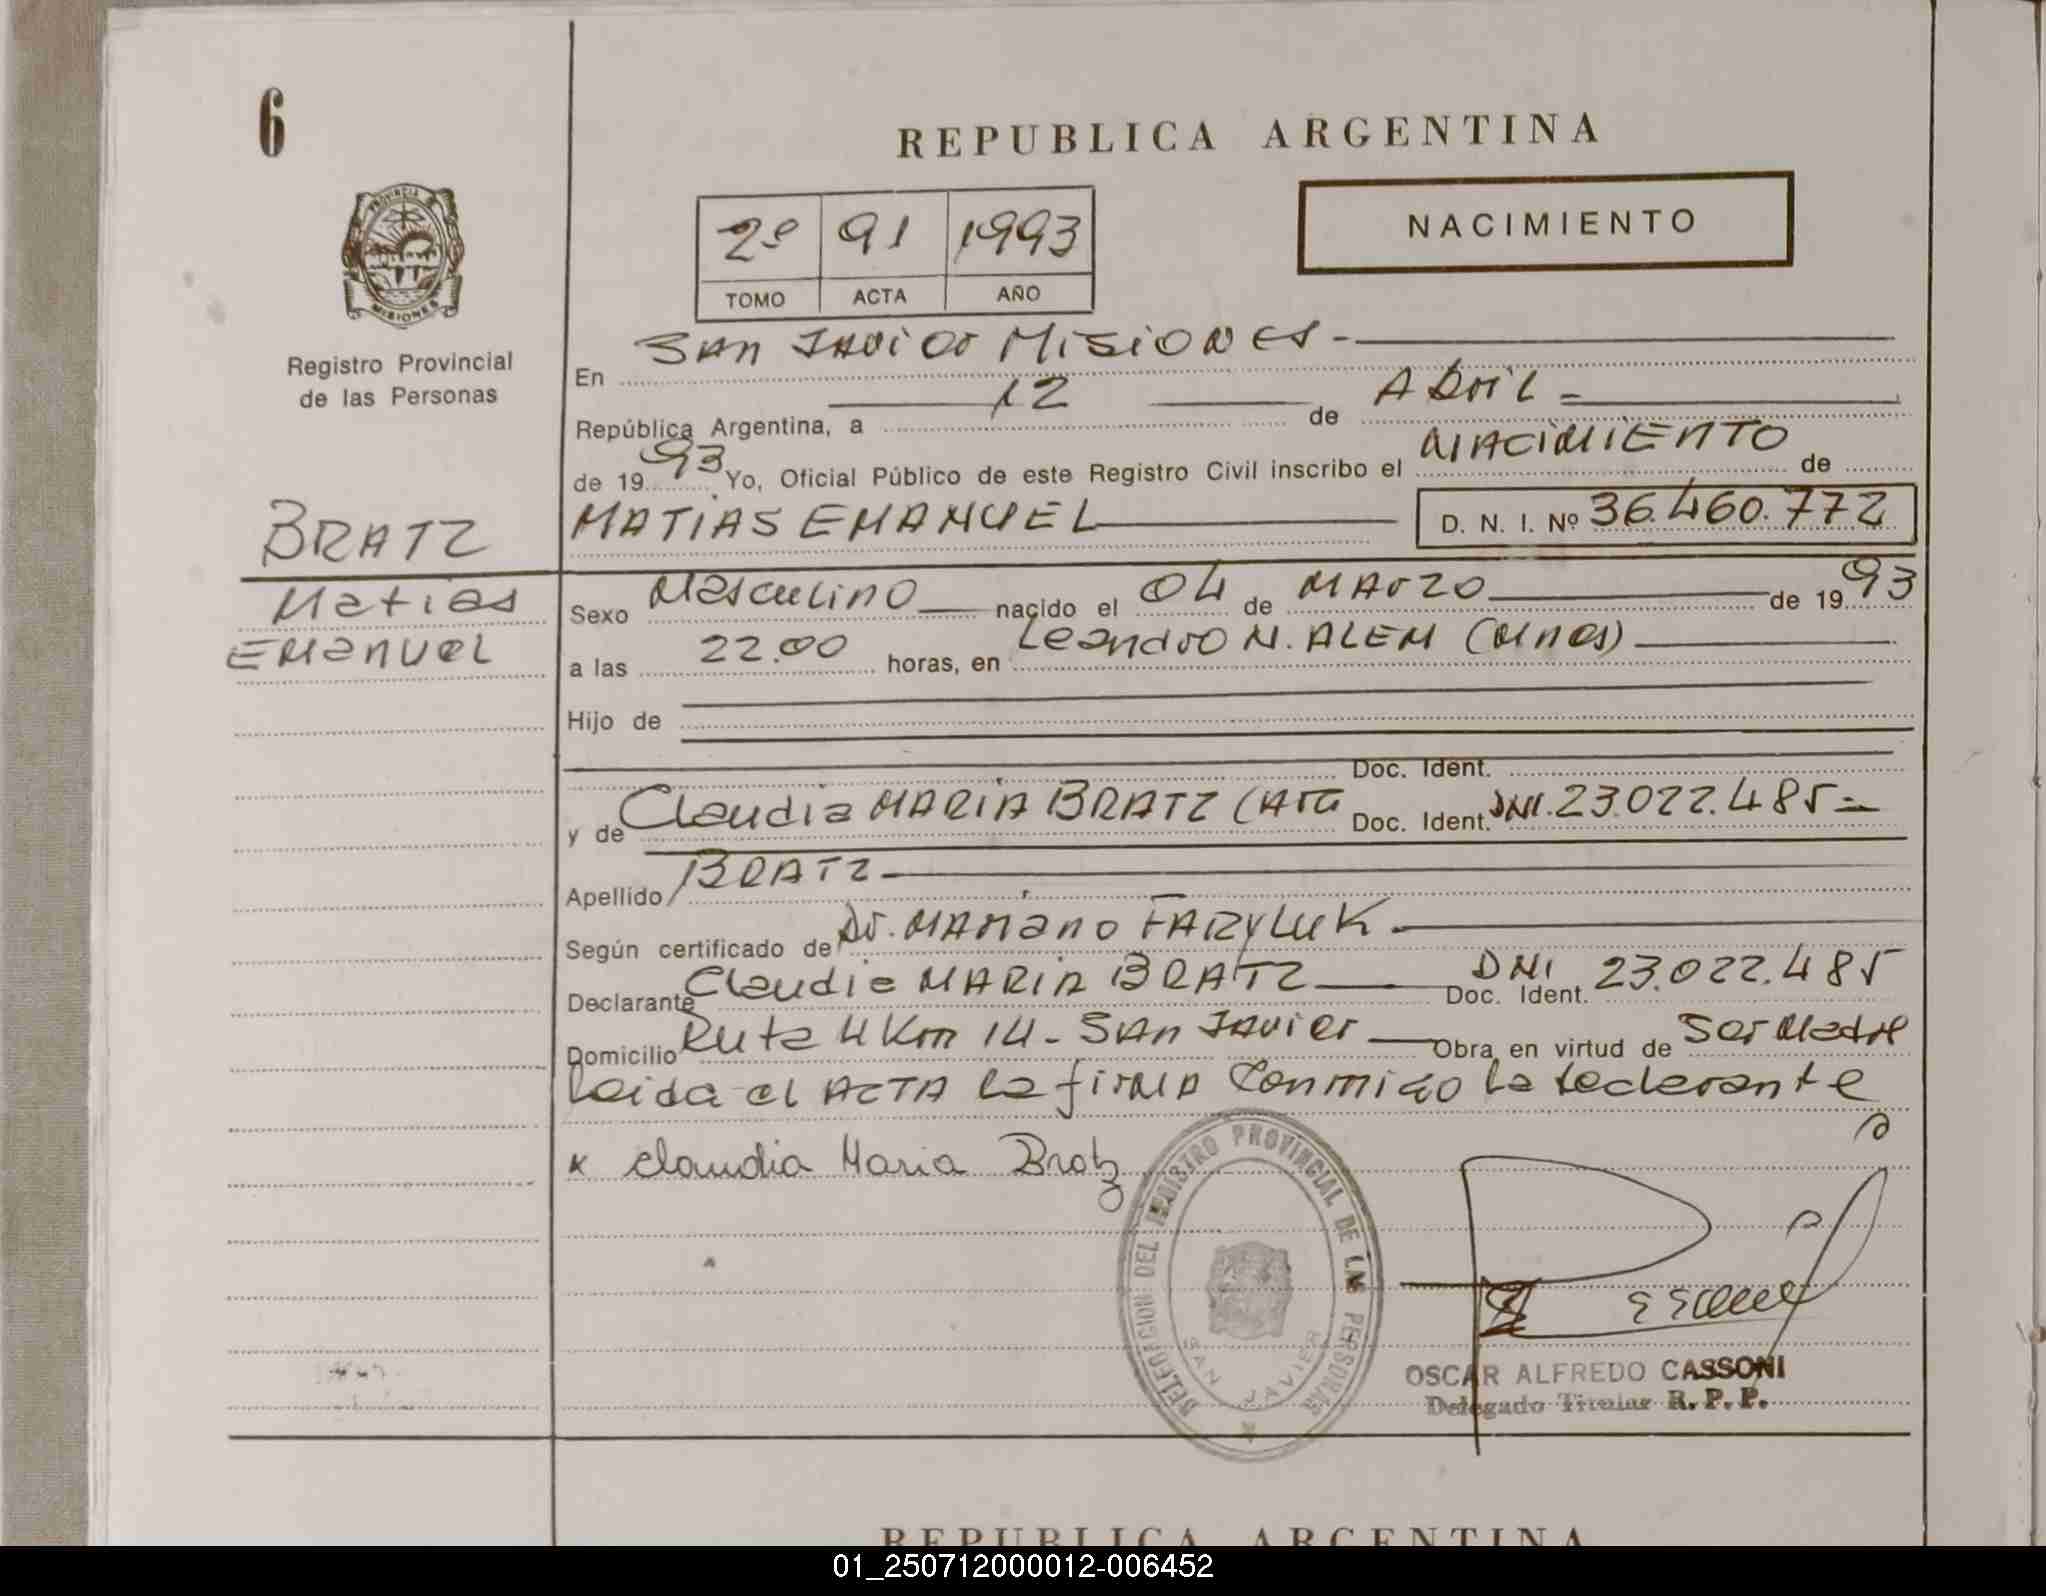 6
REPUBLICA ARGENTINA
PROVINCIA
MISIONES
Registro Provincial
de las Personas
2º 91 1993
TOMO ACTA AÑO
NACIMIENTO
En SAN JAVIER MISIONES-
República Argentina, a 12 de ABRIL =
de 1993 Yo, Oficial Público de este Registro Civil inscribo el NACIMIENTO de
BRATZ
Matias
EMANUEL
MATIAS EMANUEL D. N. I. Nº 36.460.772
Sexo MASCULINO nacido el 04 de MARZO de 1993
a las 22.00 horas, en Leandro N. ALEM (Mnes)
Hijo de
Doc. Ident.
y de Claudia MARIA BRATZ (ARG Doc. Ident. DNI. 23.022.485=
Apellido BRATZ
Según certificado de Dr. MARIANO FARYLUK
Declarante Claudia MARIA BRATZ Doc. Ident. DNI 23.022.485
Domicilio Ruta 4 Km 14 - SAN JAVIER Obra en virtud de Ser Madre
Leida el ACTA la firma conmigo la declarante
x Claudia Maria Bratz
DELEGACION DEL REGISTRO PROVINCIAL DE LAS PERSONAS
SAN JAVIER
OSCAR ALFREDO CASSONI
Delegado Titular R. P. P.
REPUBLICA ARGENTINA
01_250712000012-006452